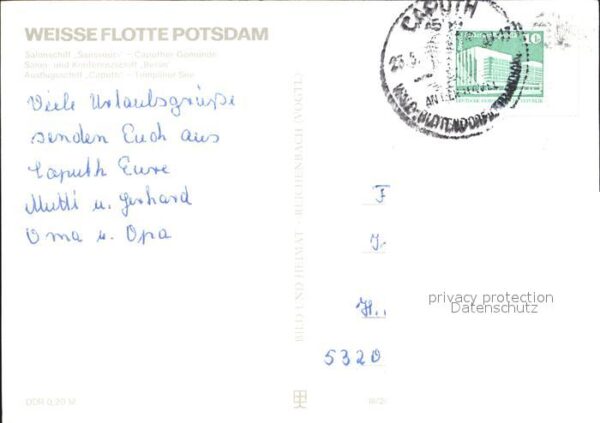 WEISSE FLOTTE POTSDAM
Salonschiff „Sanssouci" – Caputher Gemünde
Salon- und Konferenzschiff „Berlin"
Ausflugsschiff „Caputh" – Templiner See
Viele Urlaubsgrüße
senden Euch aus
Caputh Eure
Mutti u. Gerhard
Oma u. Opa
DDR 0,20 M
BILD UND HEIMAT · REICHENBACH (VOGTL)
CAPUTH
10
F
J.
H..
5320
privacy protection
Datenschutz